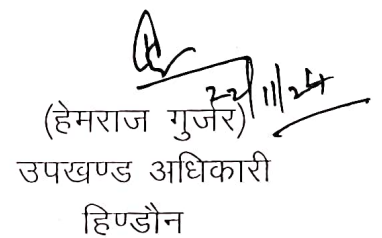 22/11/24
(हेमराज गुर्जर)
उपखण्ड अधिकारी
हिण्डौन